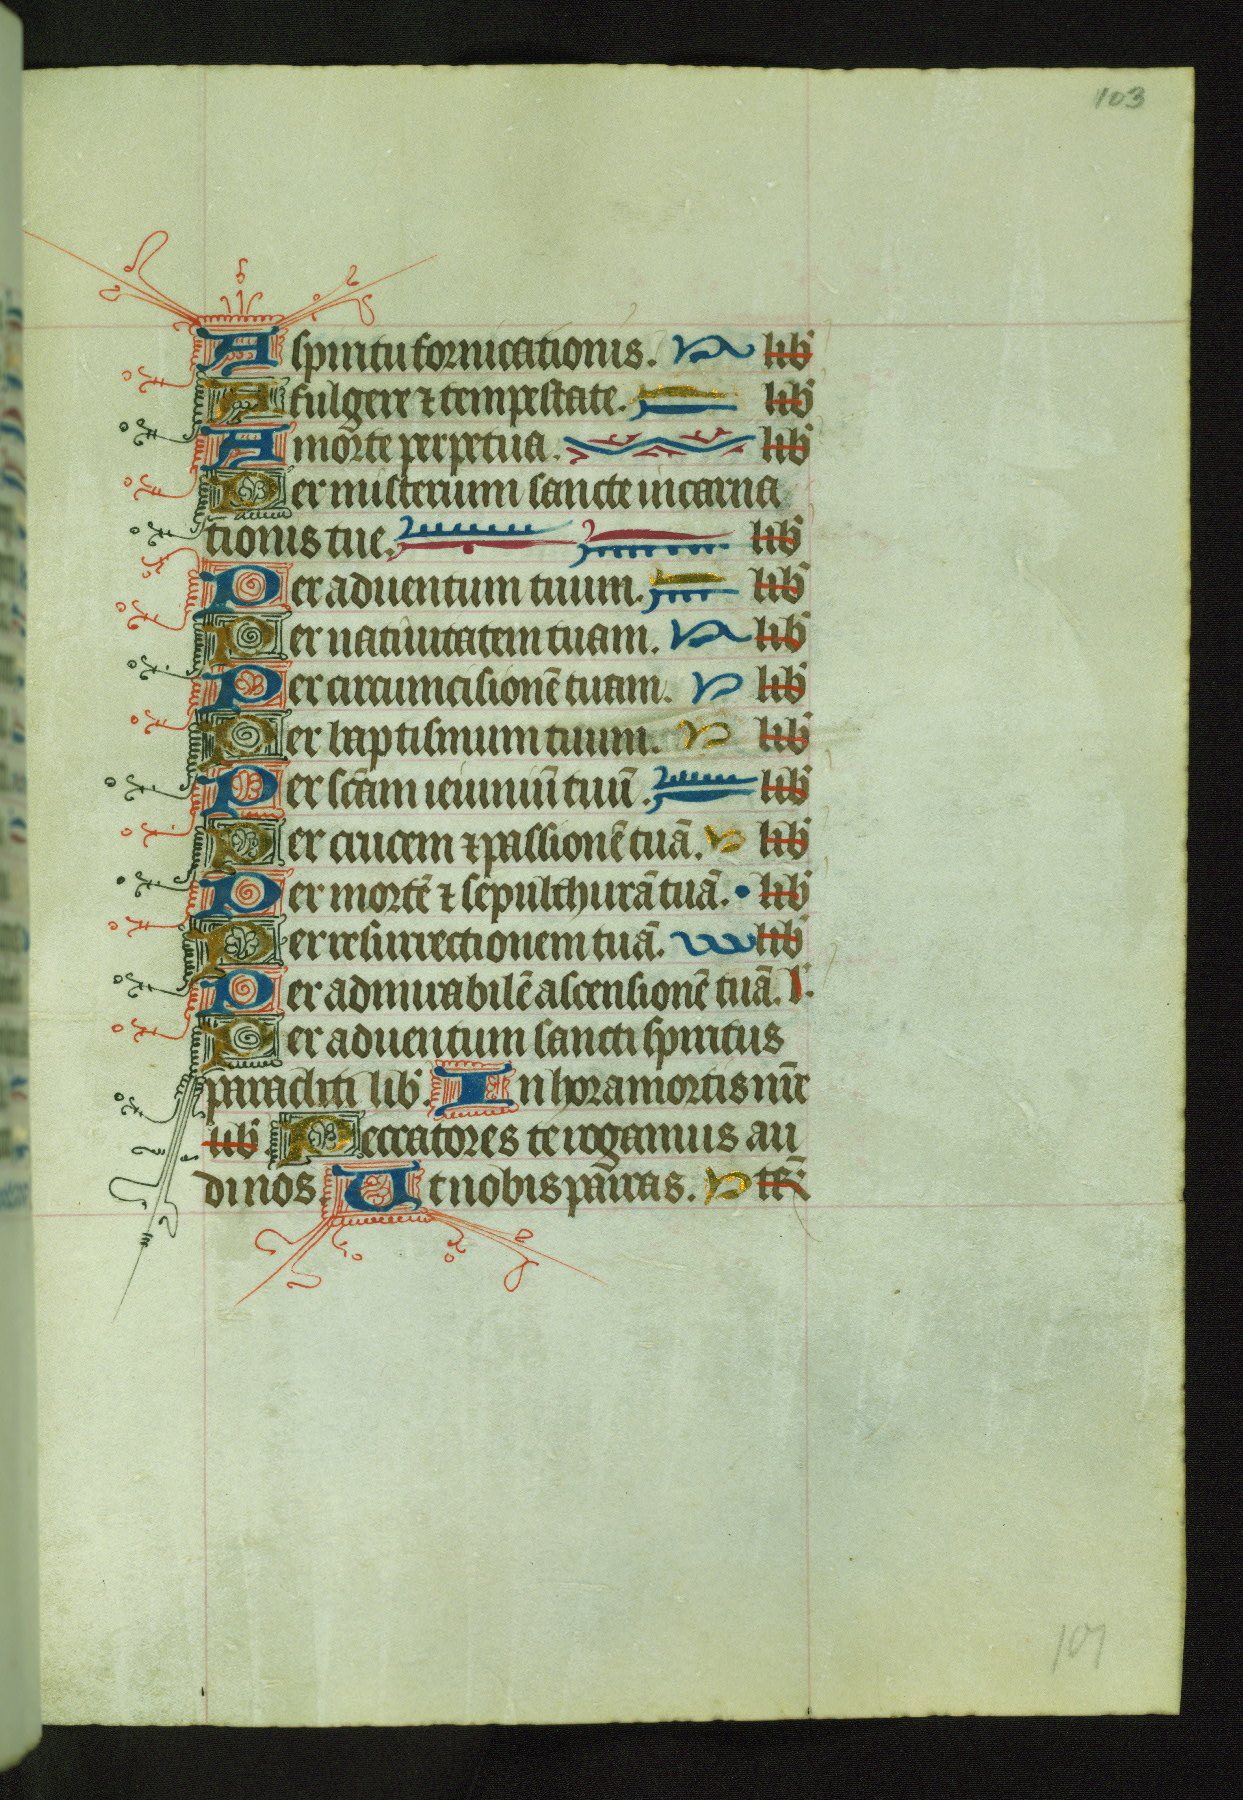 103
A spiritu fornicationis. lib̄
A fulgere ⁊ tempestate. lib̄
A morte perpetua. lib̄
Per misterium sancte incarna
tionis tue. lib̄
Per aduentum tuum. lib̄
Per natiuitatem tuam. lib̄
Per circumcisionē tuam. lib̄
Per baptismum tuum. lib̄
Per sc̄tam ieiuniū tuū. lib̄
Per crucem ⁊ passionē tuā. lib̄
Per mortē ⁊ sepulchurā tuā. lib̄
Per resurrectionem tuā. lib̄
Per admirabilē ascensionē tuā. l.
Per aduentum sancti spiritus
paracliti lib̄. In hora mortis nr̄e
lib̄. Peccatores te rogamus au
di nos. Ut nobis parcas. te r̄
107